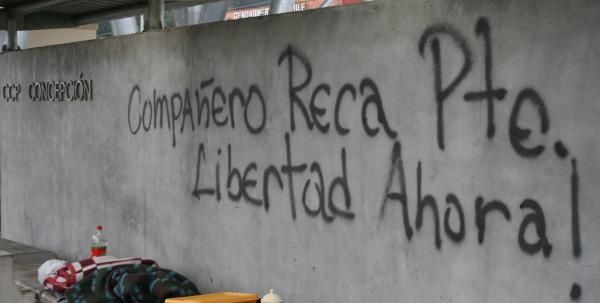 GENDARMER
CCP CONCEPCIÓN
Compañero Reca Pte.
Libertad Ahora!